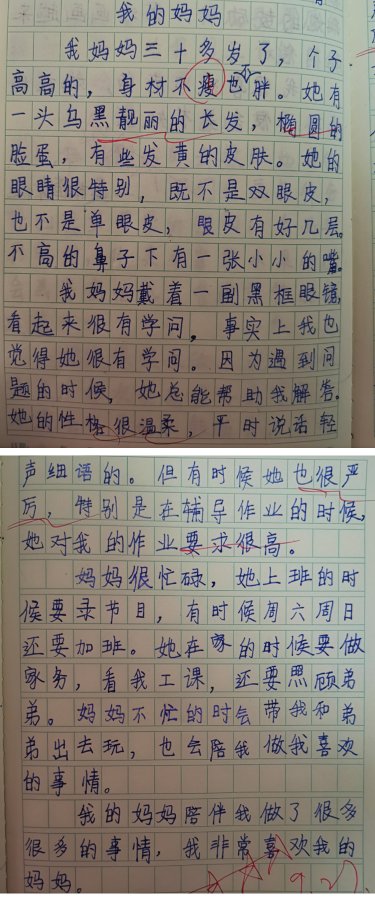 我的妈妈
我妈妈三十多岁了，个子
高高的，身材不瘦也不胖。她有
一头乌黑靓丽的长发，椭圆的
脸蛋，有些发黄的皮肤。她的
眼睛很特别，既不是双眼皮，
也不是单眼皮，眼皮有好几层。
不高的鼻子下有一张小小的嘴。
我妈妈戴着一副黑框眼镜，
看起来很有学问，事实上我也
觉得她很有学问。因为遇到问
题的时候，她总能帮助我解答。
她的性格很温柔，平时说话轻
声细语的。但有时候她也很严
厉，特别是在辅导作业的时候，
她对我的作业要求很高。
妈妈很忙碌，她上班的时
候要录节目，有时候周六周日
还要加班。她在家的时候要做
家务，看我工课，还要照顾弟
弟。妈妈不忙的时会带我和弟
弟出去玩，也会陪我做我喜欢
的事情。
我的妈妈陪伴我做了很多
很多的事情，我非常喜欢我的
妈妈。